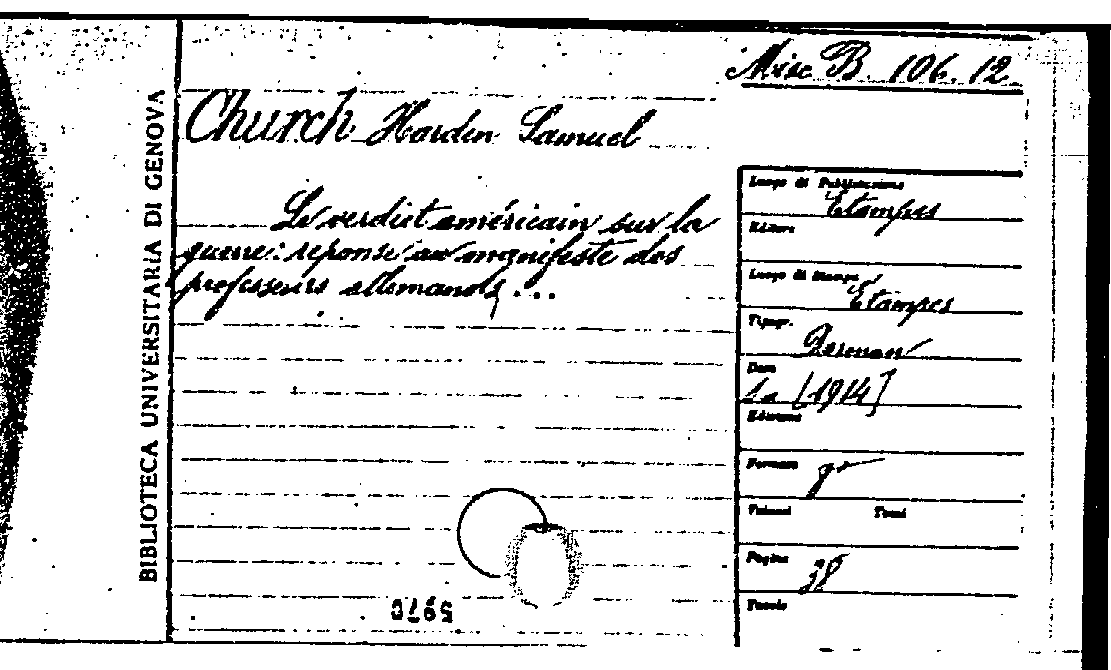 Misc B 106.12
Church Harden Samuel
Le verdict américain sur la
guerre: reponse au manifeste dos
professeurs allemands, ...
BIBLIOTECA UNIVERSITARIA DI GENOVA
Luogo di Pubblicazione
Étampes
Editore
Luogo di Stampa
Étampes
Tipogr.
Data
[1914]
Edizione
Formato
8°
Volumi Tomi
Pagine
38
Tavole
5970